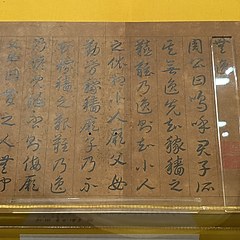 無逸
周公曰嗚呼君子所
其無逸先知稼穡之
艱難乃逸則知小人
之依相小人厥父母
勤勞稼穡厥子乃不
知稼穡之艱難乃逸
乃諺既誕否則侮厥
父母曰昔之人無聞